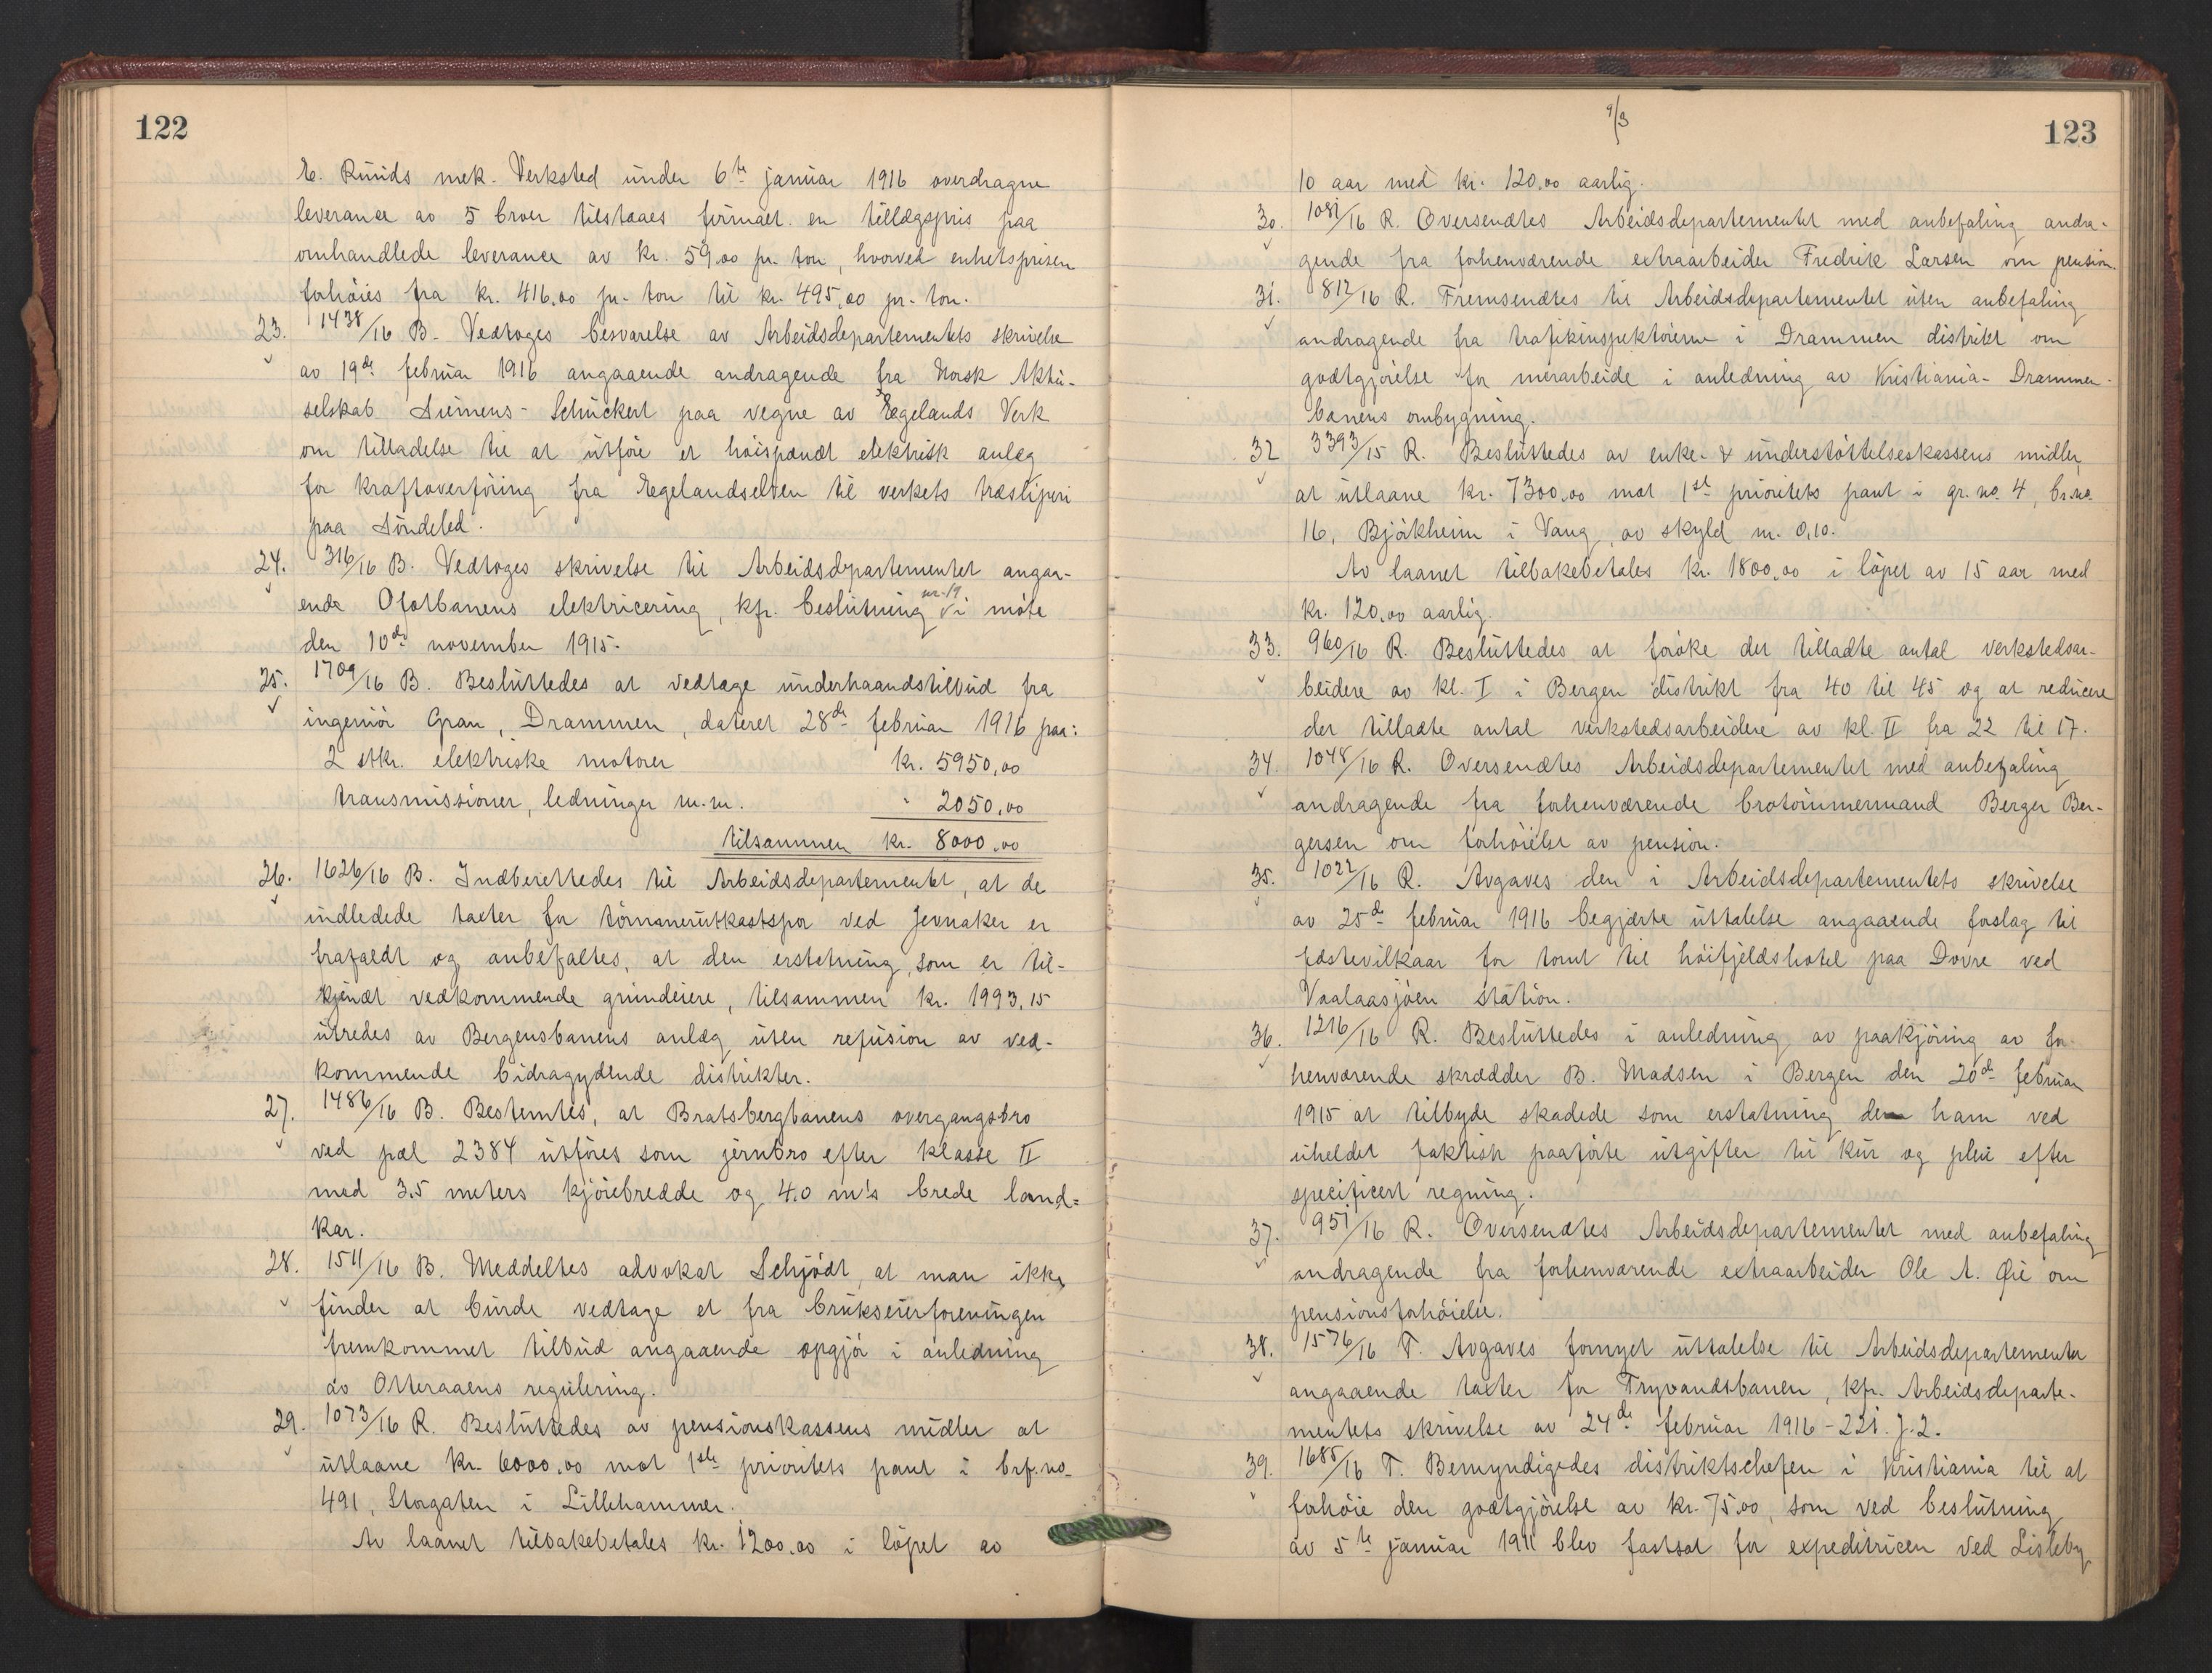 122
E. Ruuds mek. Verksted under 6te januar 1916 overdragne
leverance av 5 broer tilstaaes firmaet en tillægspris paa
omhandlede leverance av kr. 59,00 pr. ton, hvorved enhetsprisen
forhöies fra kr. 416,00 pr. ton til kr. 495,00 pr. ton.
23. 1438/16 B. Vedtoges besvarelse av Arbeidsdepartementets skrivelse
av 19de februar 1916 angaaende andragende fra Norsk Aktie-
selskab Siemens-Schuckert paa vegne av Egelands Verk
om tilladelse til at utföre et höispændt elektrisk anlæg
for kraftoverföring fra Egelandselven til verkets træsliperi
paa Söndeled.
24. 316/16 B. Vedtoges skrivelse til Arbeidsdepartementet angaa-
ende Ofotbanens elektricering, kfr. beslutning nr. 19 i möte
den 10de november 1915.
25. 1709/16 B. Besluttedes at vedtage underhaandstilbud fra
ingeniör Gran, Drammen, dateret 28de februar 1916 paa:
2 stkr. elektriske motorer kr. 5950,00
transmissioner, ledninger m.m. " 2050,00
tilsammen kr. 8000,00
26. 1626/16 B. Indberettedes til Arbeidsdepartementet, at de
indledede taxter for tömmerutkastspor ved Jevnaker er
frafaldt og anbefaltes, at den erstatning, som er til-
kjendt vedkommende grundeiere, tilsammen kr. 1993,15
utredes av Bergensbanens anlæg uten refusion av ved-
kommende bidragydende distrikter.
27. 1486/16 B. Bestemtes, at Bratsbergbanens overgangsbro
ved pæl 2384 utföres som jernbro efter klasse II
med 3.5 meters kjörebredde og 4.0 m's brede land-
kar.
28. 1511/16 B. Meddeltes advokat Schjödt, at man ikke
finder at burde vedtage et fra brukseierforeningen
fremkommet tilbud angaaende opgjör i anledning
av Otteraaens regulering.
29. 1073/16 R. Besluttedes av pensionskassens midler at
utlaane kr. 6000,00 mot 1ste prioritets pant i brf. no.
491, Storgaten i Lillehammer.
Av laanet tilbakebetales kr. 1200,00 i löpet av
9/3
123
10 aar med kr. 120,00 aarlig.
30. 1081/16 R. Oversendtes Arbeidsdepartementet med anbefaling andra-
gende fra forhenværende extraarbeider Fredrik Larsen om pension.
31. 812/16 R. Fremsendtes til Arbeidsdepartementet uten anbefaling
andragende fra trafikinspektörerne i Drammen distrikt om
godtgjörelse for merarbeide i anledning av Kristiania-Drammen-
banens ombygning.
32 3393/15 R. Besluttedes av enke- & understöttelseskassens midler,
at utlaane kr. 7300,00 mot 1ste prioritets pant i gr. no. 4, br. no.
16, Bjökheim i Vang, av skyld m. 0,10.
Av laanet tilbakebetales kr. 1800,00 i löpet av 15 aar med
kr. 120,00 aarlig.
33. 960/16 R. Besluttedes at foröke det tilladte antal verkstedsar-
beidere av kl. I i Bergen distrikt fra 40 til 45 og at reducere
det tilladte antal verkstedsarbeidere av kl. II fra 22 til 17.
34. 1048/16 R. Oversendtes Arbeidsdepartementet med anbefaling
andragende fra forhenværende brotömmermand Berger Ber-
gersen om forhöielse av pension.
35. 1022/16 R. Avgaves den i Arbeidsdepartementets skrivelse
av 25de februar 1916 begjærte uttalelse angaaende forslag til
fæstevilkaar for tomt til höifjeldshotel paa Dovre ved
Vaalaasjöen station.
36. 1216/16 R. Besluttedes i anledning av paakjöring av for-
henværende skrædder B. Madsen i Bergen den 20de februar
1915 at tilbyde skadede som erstatning de ham ved
uheldet faktisk paaförte utgifter til kur og pleie efter
specificert regning.
37. 951/16 R. Oversendtes Arbeidsdepartementet med anbefaling
andragende fra forhenværende extraarbeider Ole A. Øie om
pensionsforhöielse.
38. 1576/16 T. Avgaves fornyet uttalelse til Arbeidsdepartementet
angaaende taxter for Tryvandsbanen, kfr. Arbeidsdeparte-
mentets skrivelse av 24de februar 1916 - 221. J. 2.
39. 1685/16 T. Bemyndigedes distriktschefen i Kristiania til at
forhöie den godtgjörelse av kr. 75,00, som ved beslutning
av 5te januar 1911 blev fastsat for expeditricen ved Lisleby